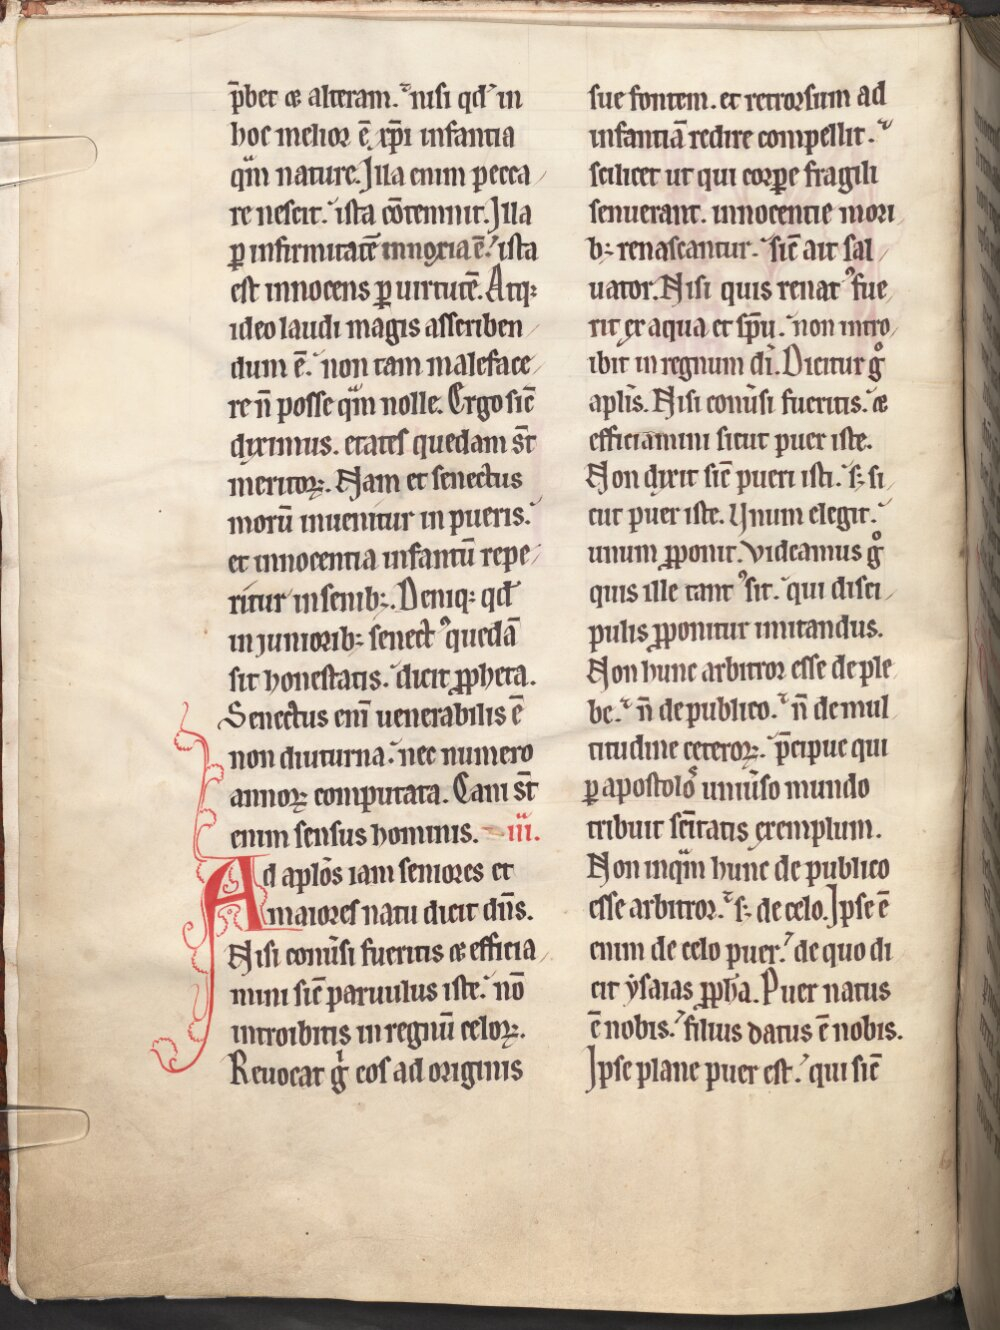 p̄bet ⁊ alteram. nisi qđ in
hoc melior ē xp̄i infantia
qͣm nature. Illa enim pecca
re nescit. ista cōtemnit. Illa
ꝑ infirmitatē innoxia ē. ista
est innocens ꝑ uirtutē. Atqꝫ
ideo laudi magis asseriben
dum ē. non tam maleface
re n̄ posse qͣm nolle. Ergo sic̄
diximus. etates quedam st̄
meritoꝝ. Nam et senectus
morū inuenitur in pueris.
et innocentia infantū repe
ritur in senibꝫ. Deniqꝫ qđ
in iunioribꝫ senectꝰ quedā
sit honestatis. dicit ꝓpheta.
Senectus eni uenerabilis ē
non diuturna. nec numero
annoꝝ computata. Cani st̄
enim sensus hominis. iii.
Ad aplōs iam seniores et
maiores natu dicit dn̄s.
Nisi conūsi fueritis ⁊ efficia
mini sic̄ paruulus iste. nō
introibitis in regnū celoꝝ.
Reuocat gͥ eos ad originis
sue fontem. et retrorsum ad
infantiā redire compellit.
scilicet ut qui corꝑe fragili
senuerant. innocentie mori
bꝫ renascantur. sic̄ ait sal
uator. Nisi quis renatꝰ fue
rit ex aqua et sp̄u. non intro
ibit in regnum di̅. Dicitur gͦ
aplis̄. Nisi conūsi fueritis. ⁊
efficiamini sicut puer iste.
Non dixit sic̄ pueri isti. sꝫ si
cut puer iste. Unum elegit.
unum ꝓponit. Videamus gͦ
quis ille tantꝰ sit. qui disci
pulis ꝓponitur imitandus.
Non hunc arbitror esse de ple
be. n̄ de publico. n̄ de mul
titudine ceteroꝝ. p̄cipue qui
ꝑ apostolos uniūso mundo
tribuit sc̄itatis exemplum.
Non inqͣm hunc de publico
esse arbitror. sꝫ de celo. Ipse ē
enim de celo puer. de quo di
cit ysaias ꝓph̄a. Puer natus
ē nobis. filius datus ē nobis.
Ipse plane puer est. qui sic̄